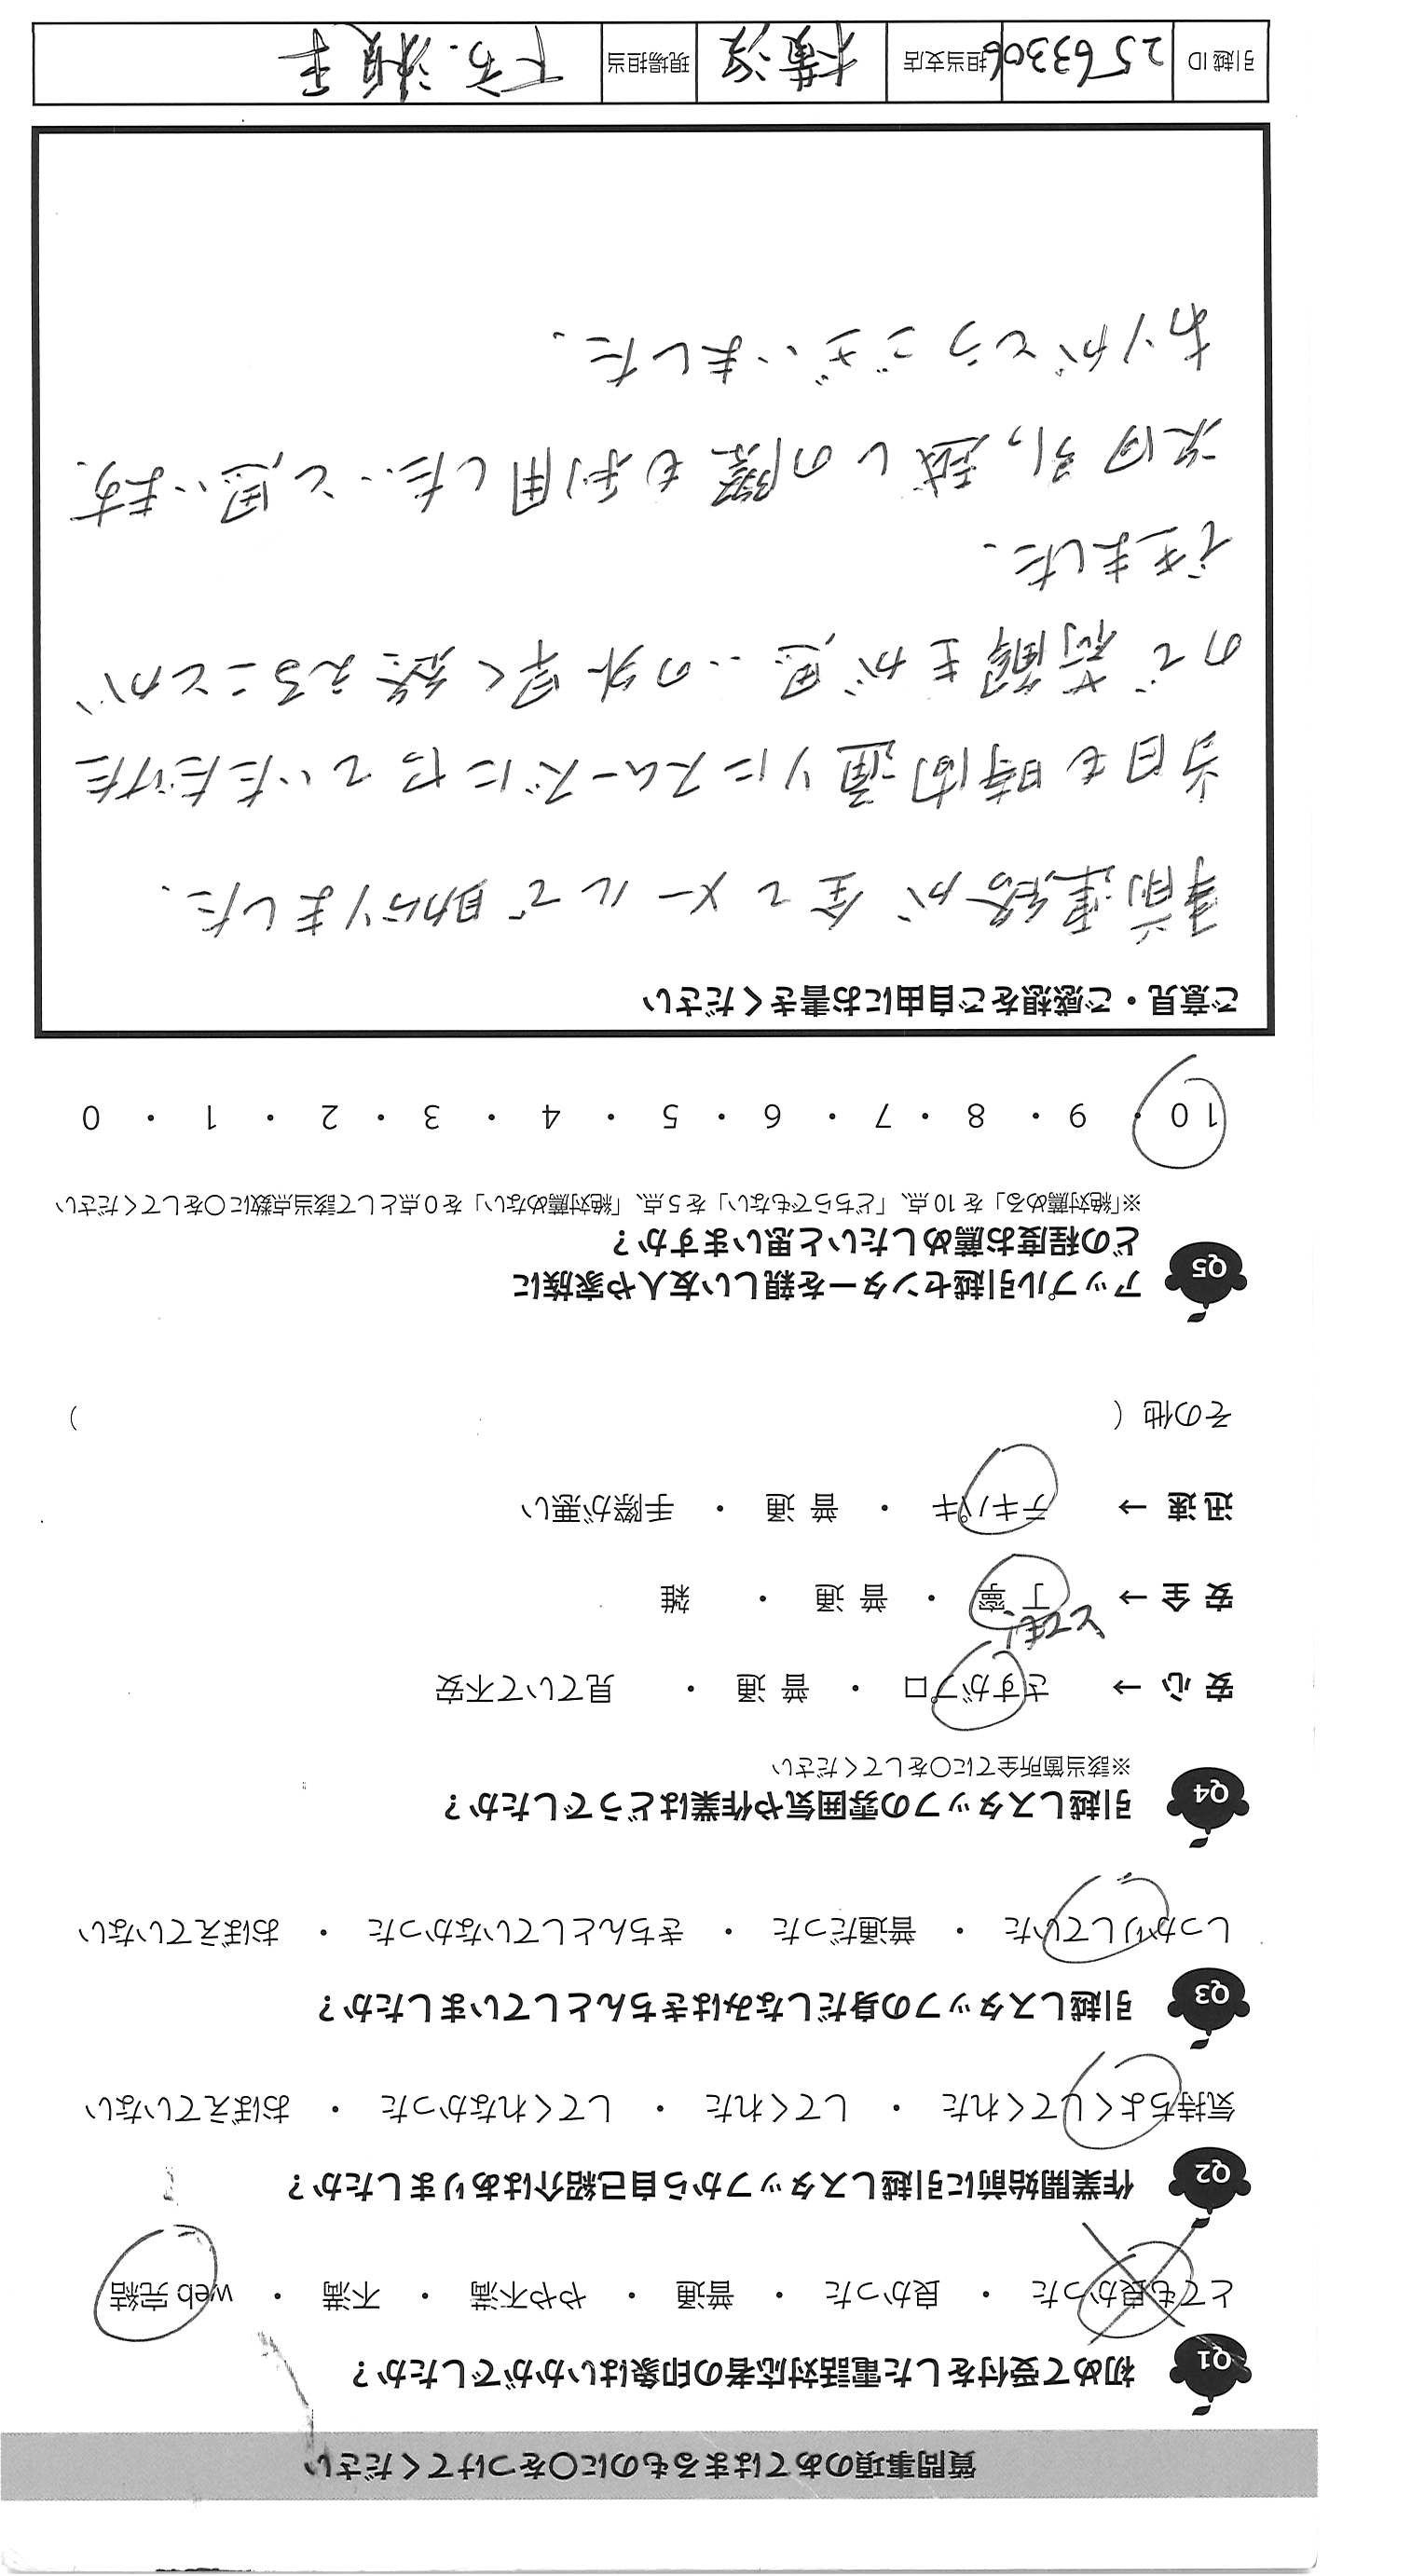 質問事項のあてはまるものに○をつけてください
Q1 初めて受付をした電話対応者の印象はいかがでしたか？
とても良かった ・ 良かった ・ 普通 ・ やや不満 ・ 不満 ・ web 完結
Q2 作業開始前に引越しスタッフから自己紹介はありましたか？
気持ちよくしてくれた ・ してくれた ・ してくれなかった ・ おぼえていない
Q3 引越しスタッフの身だしなみはきちんとしていましたか？
しっかりしていた ・ 普通だった ・ きちんとしていなかった ・ おぼえていない
Q4 引越しスタッフの雰囲気や作業はどうでしたか？
※該当箇所全てに○をしてください
安 心 → さすがプロ ・ 普 通 ・ 見ていて不安
とても！
安 全 → 丁 寧 ・ 普 通 ・ 雑
迅 速 → テキパキ ・ 普 通 ・ 手際が悪い
その他（ ）
Q5 アップル引越センターを親しい友人や家族に
どの程度お薦めしたいと思いますか？
※「絶対薦める」を 10 点、「どちらでもない」を 5 点、「絶対薦めない」を 0 点として該当点数に○をしてください
10 ・ 9 ・ 8 ・ 7 ・ 6 ・ 5 ・ 4 ・ 3 ・ 2 ・ 1 ・ 0
ご意見・ご感想をご自由にお書きください
事前連絡が全てメールで助かりました.
当日も時間通りにスムーズにやっていただけた
ので荷解きが思いの外早く終えることが
できました.
次回引っ越しの際も利用したいと思います.
ありがとうございました.
引越 ID 2563306 担当支店 横浜 現場担当